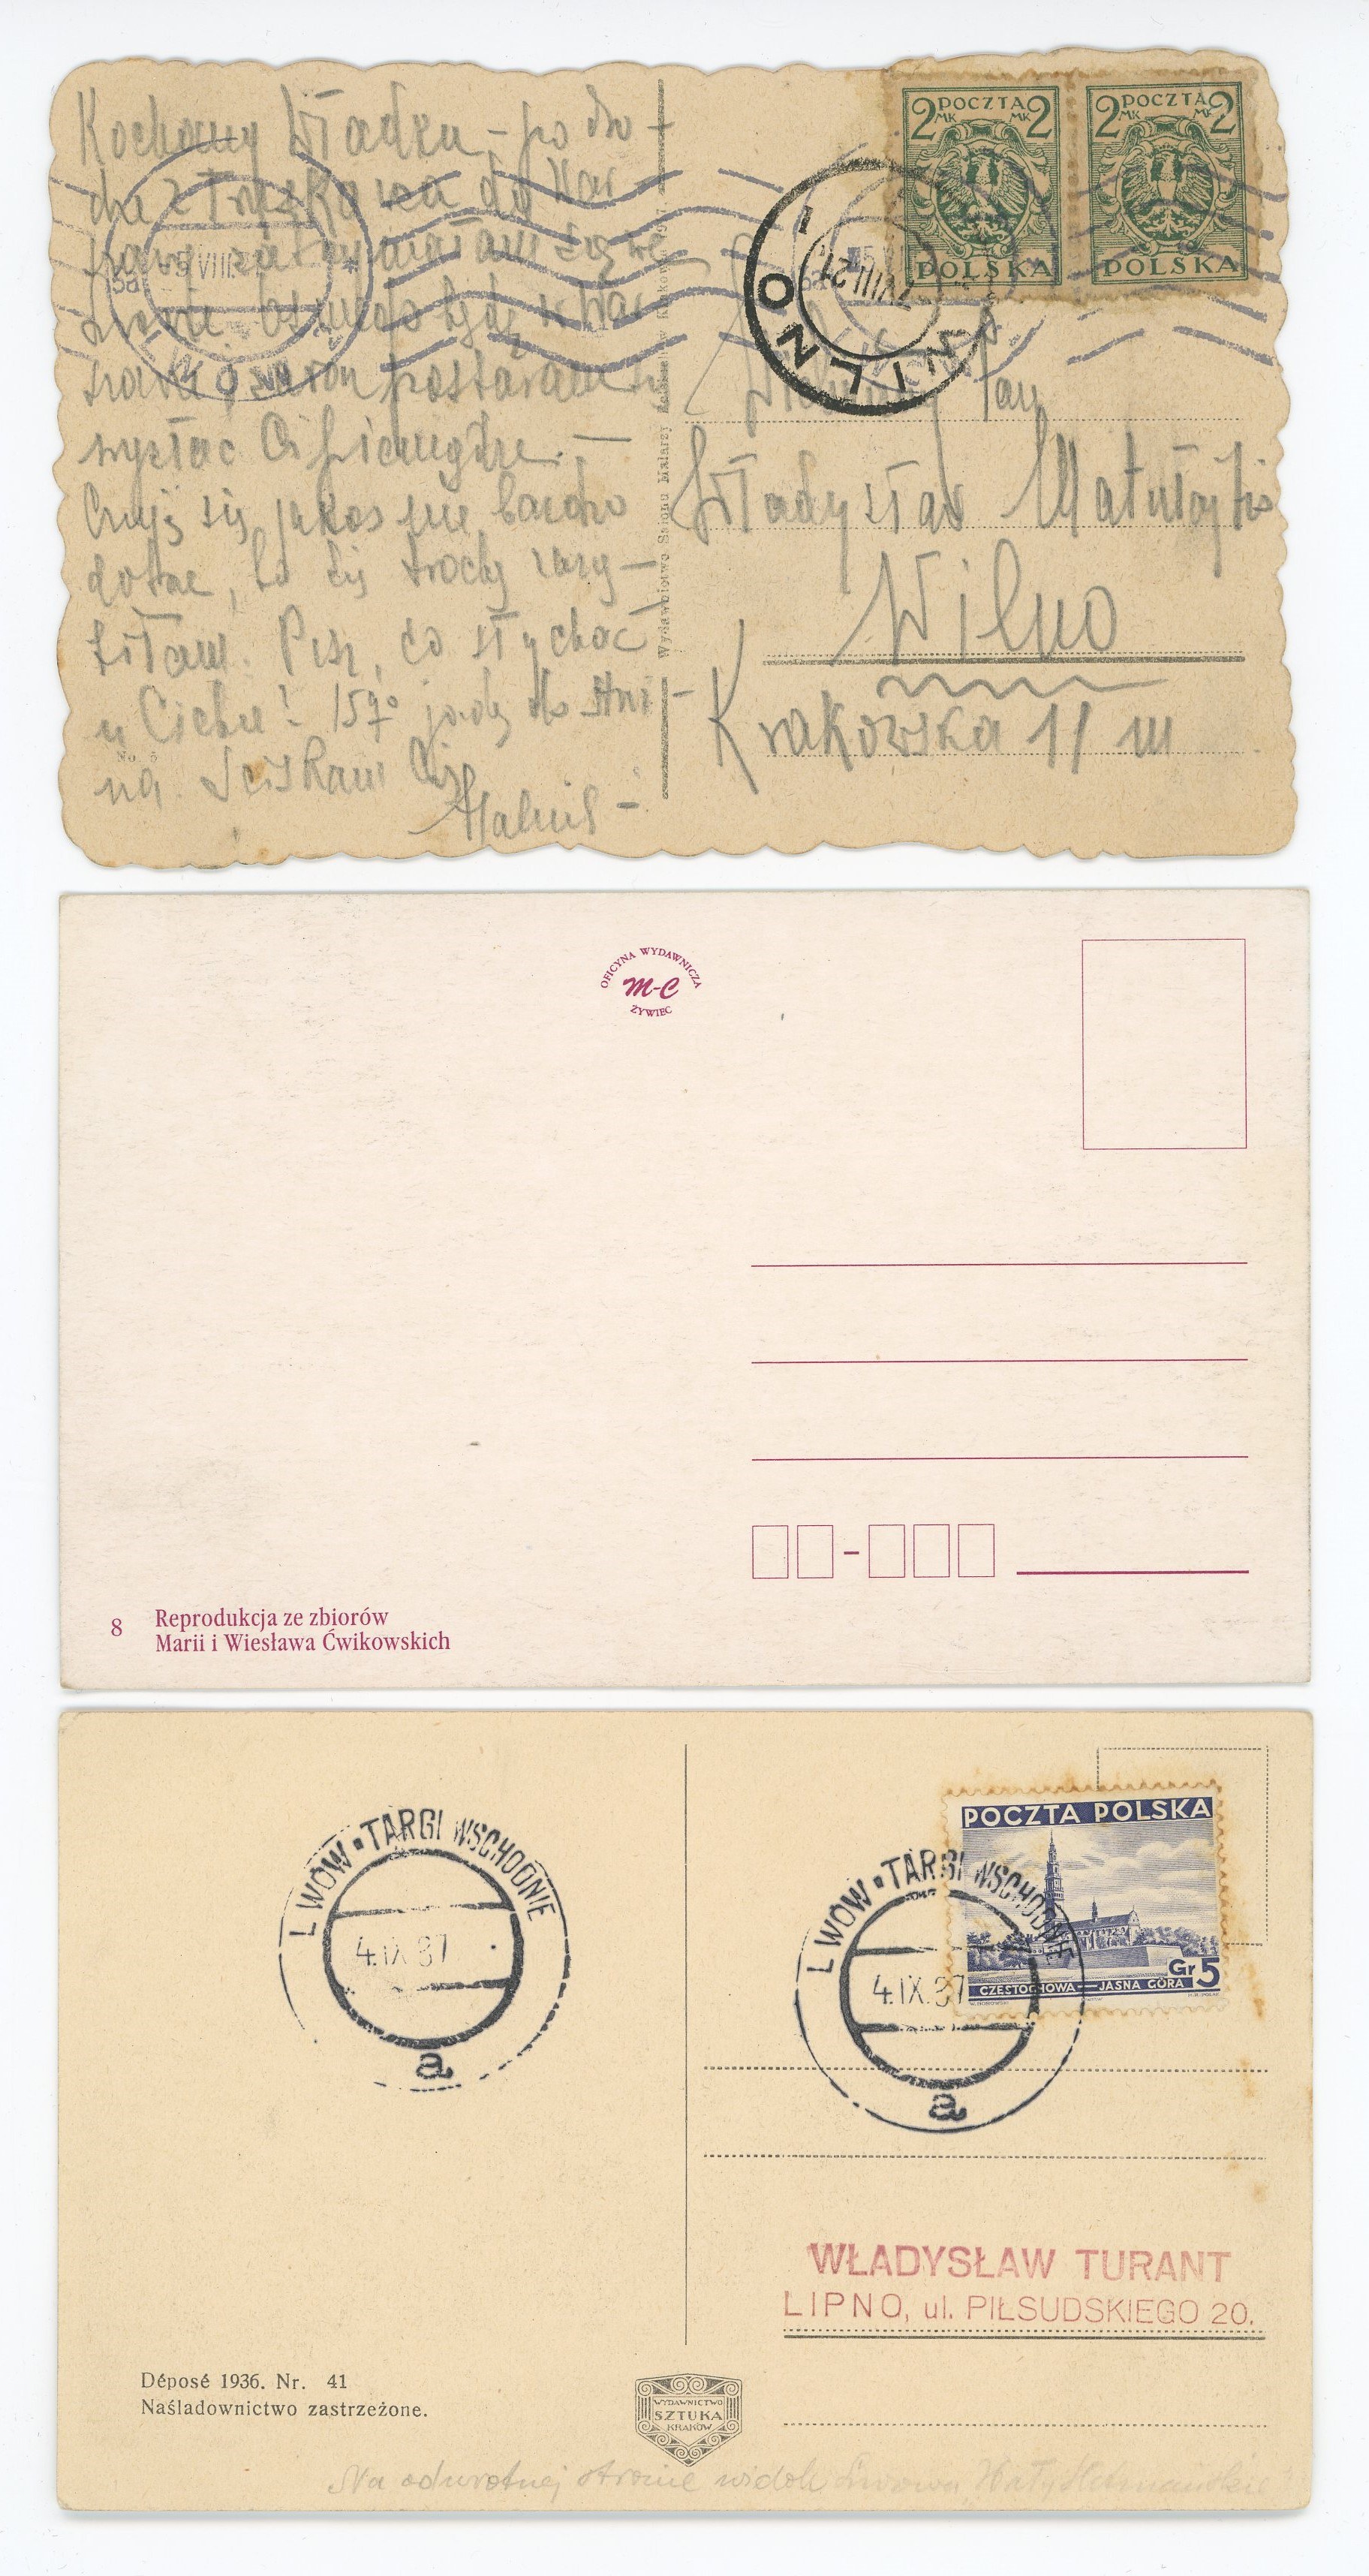 Kochany Władku – po dro-
dze z Truskawca do War-
szawy zatrzymałam się we
Lwowie. Ósmego będę w War-
szawie, zaraz postaram się
wysłać Ci pieniądze. –
Czuję się jakoś nie bardzo
dobrze, bo się trochę
Pisz, co słychać
u Ciebie? 15go jadę do
na. Ściskam Cię
No. 5
Wydawnictwo Salonu Malarzy Polskich w Krakowie
2 POCZTA 2
MK MK
POLSKA
2 POCZTA 2
MK MK
POLSKA
5 VIII
LWÓW
WILNO
7 VIII 21
Wielmożny Pan
Władysław
Wilno
Krakowska 11 m
OFICYNA WYDAWNICZA
M-C
ŻYWIEC
8 Reprodukcja ze zbiorów
Marii i Wiesława Ćwikowskich
LWÓW • TARGI WSCHODNIE
4.IX 37
a
POCZTA POLSKA
CZĘSTOCHOWA — JASNA GÓRA
Gr 5
LWÓW • TARGI WSCHODNIE
4.IX.37
a
WŁADYSŁAW TURANT
LIPNO, ul. PIŁSUDSKIEGO 20.
Déposé 1936. Nr. 41
Naśladownictwo zastrzeżone.
WYDAWNICTWO
SZTUKA
KRAKÓW
Na odwrotnej stronie widok Lwowa, Wały Hetmańskie